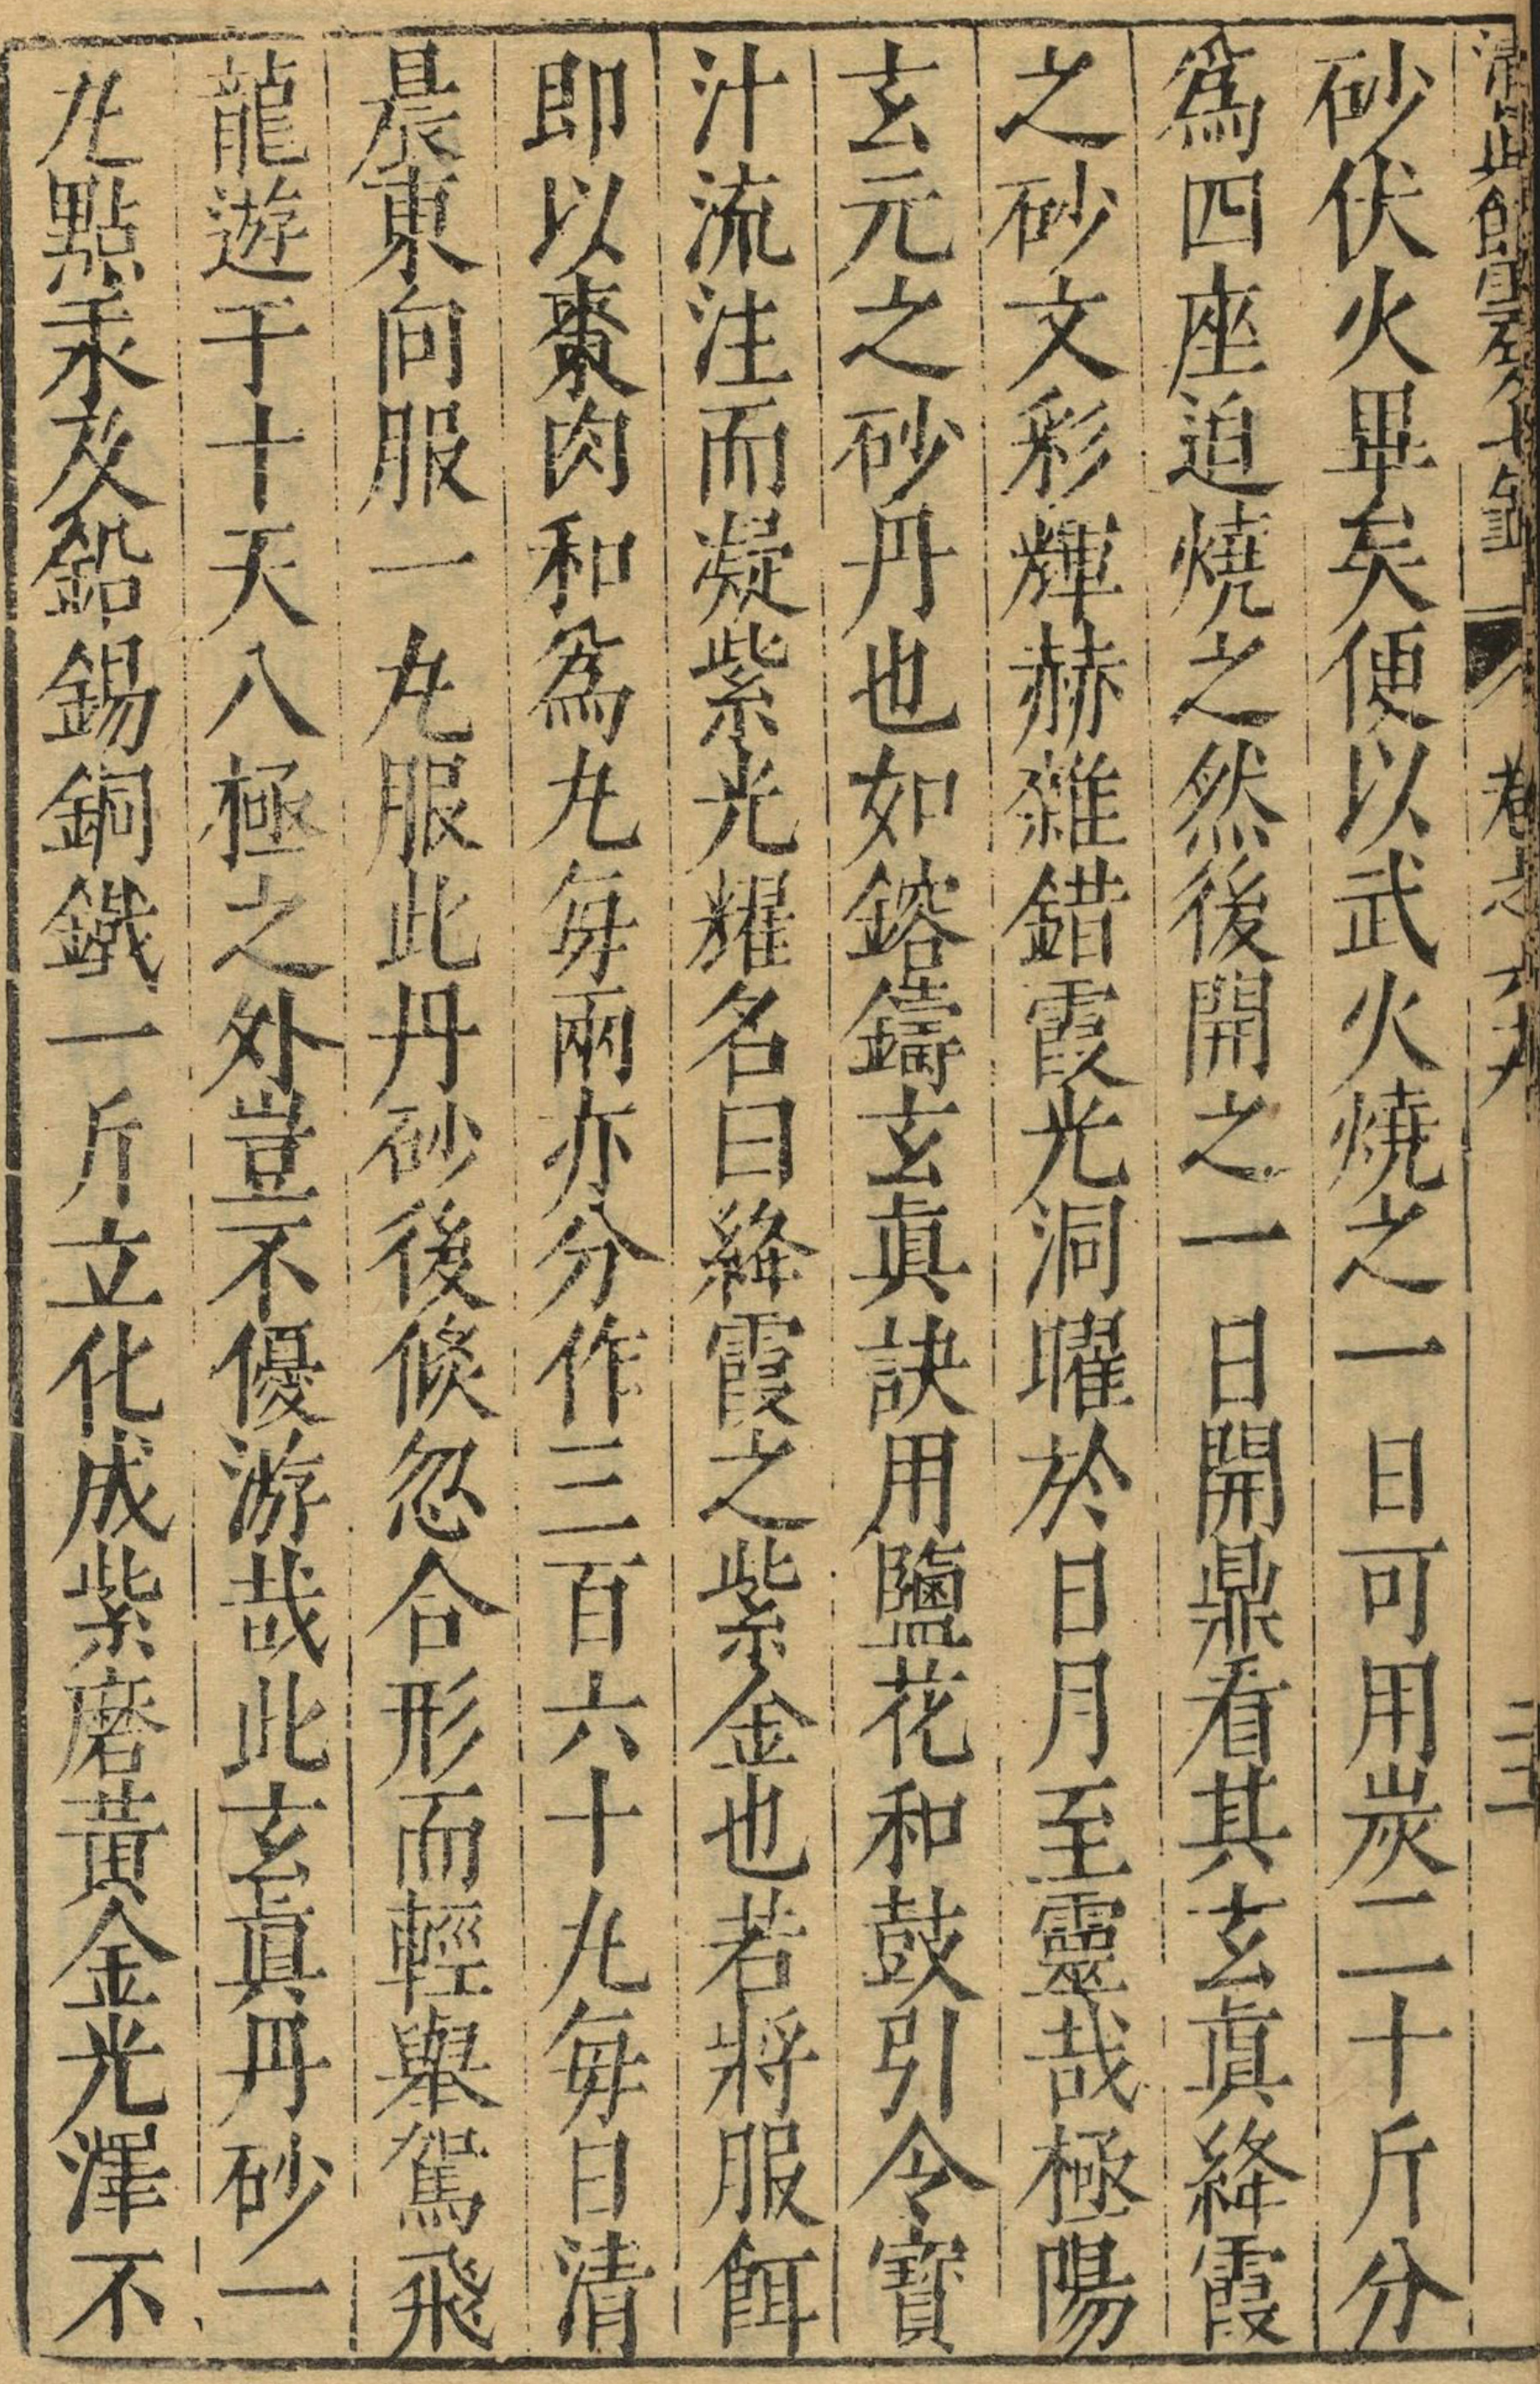 清真館雲笈七籤 卷之六十九 二十二
砂伏火畢矣便以武火燒之一日可用炭二十斤分
爲四座迫燒之然後開之一日開鼎看其玄眞絳霞
之砂文彩輝赫雜錯霞光洞曜於日月至靈哉極陽
玄元之砂丹也如鎔鑄玄眞訣用鹽花和鼓引令寶
汁流注而凝紫光耀名曰絳霞之紫金也若將服餌
即以棗肉和爲丸每兩亦分作三百六十丸每日清
晨東向服一丸服此丹砂後倐忽合形而輕舉駕飛
龍遊于十天八極之外豈不優游哉此玄眞丹砂一
丸點汞及鉛錫銅鐵一斤立化成紫磨黃金光澤不